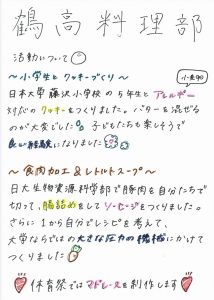 鶴高料理部
活動について
～小学生とクッキーづくり～
小麦和
日本大学藤沢小学校の5年生とアレルギー
対応のクッキーをつくりました。バターを混ぜる
のが大変でした 子どもたちも楽しそうで
良い経験になりました
～食肉加工&レトルトスープ～
日大生物資源科学部で豚肉を自分たちで
切って、腸詰めをしてソーセージをつくりました。
さらに1から自分でレシピを考えて、
大学ならではの大きな圧力の機械にかけて
つくりました
体育祭ではマドレーヌを制作します